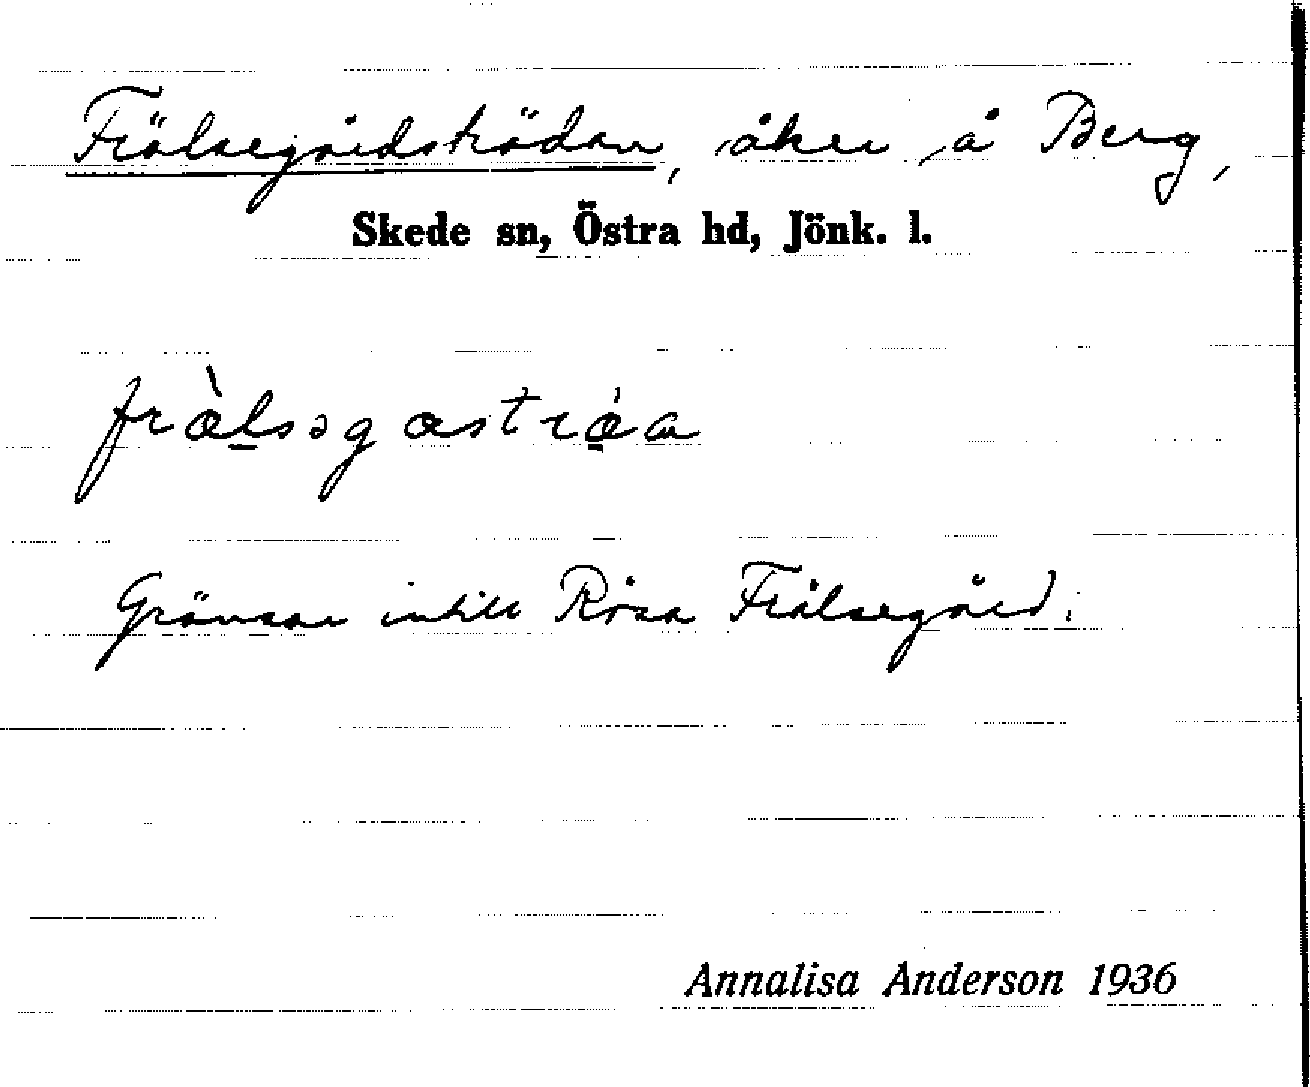 Frälsegårdsträdan, åker å Berg,
Skede sn, Östra hd, Jönk. l.
Gränsar intill Rösa Frälsegård.
Annalisa Anderson 1936